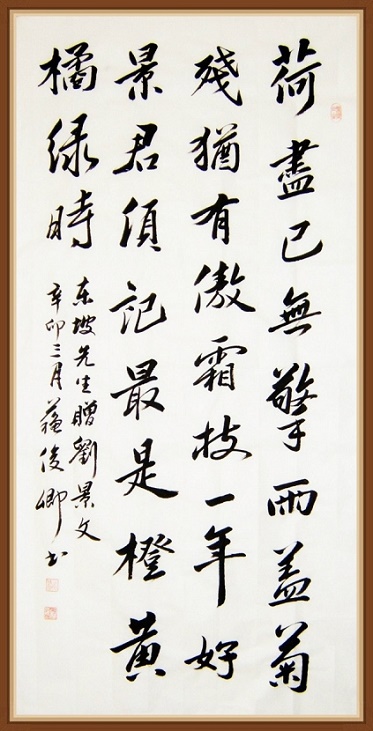 荷盡已無擎雨盖菊
殘猶有傲霜枝一年好
景君須記最是橙黄
橘绿時
东坡先生贈劉景文
辛卯三月蘓俊卿书